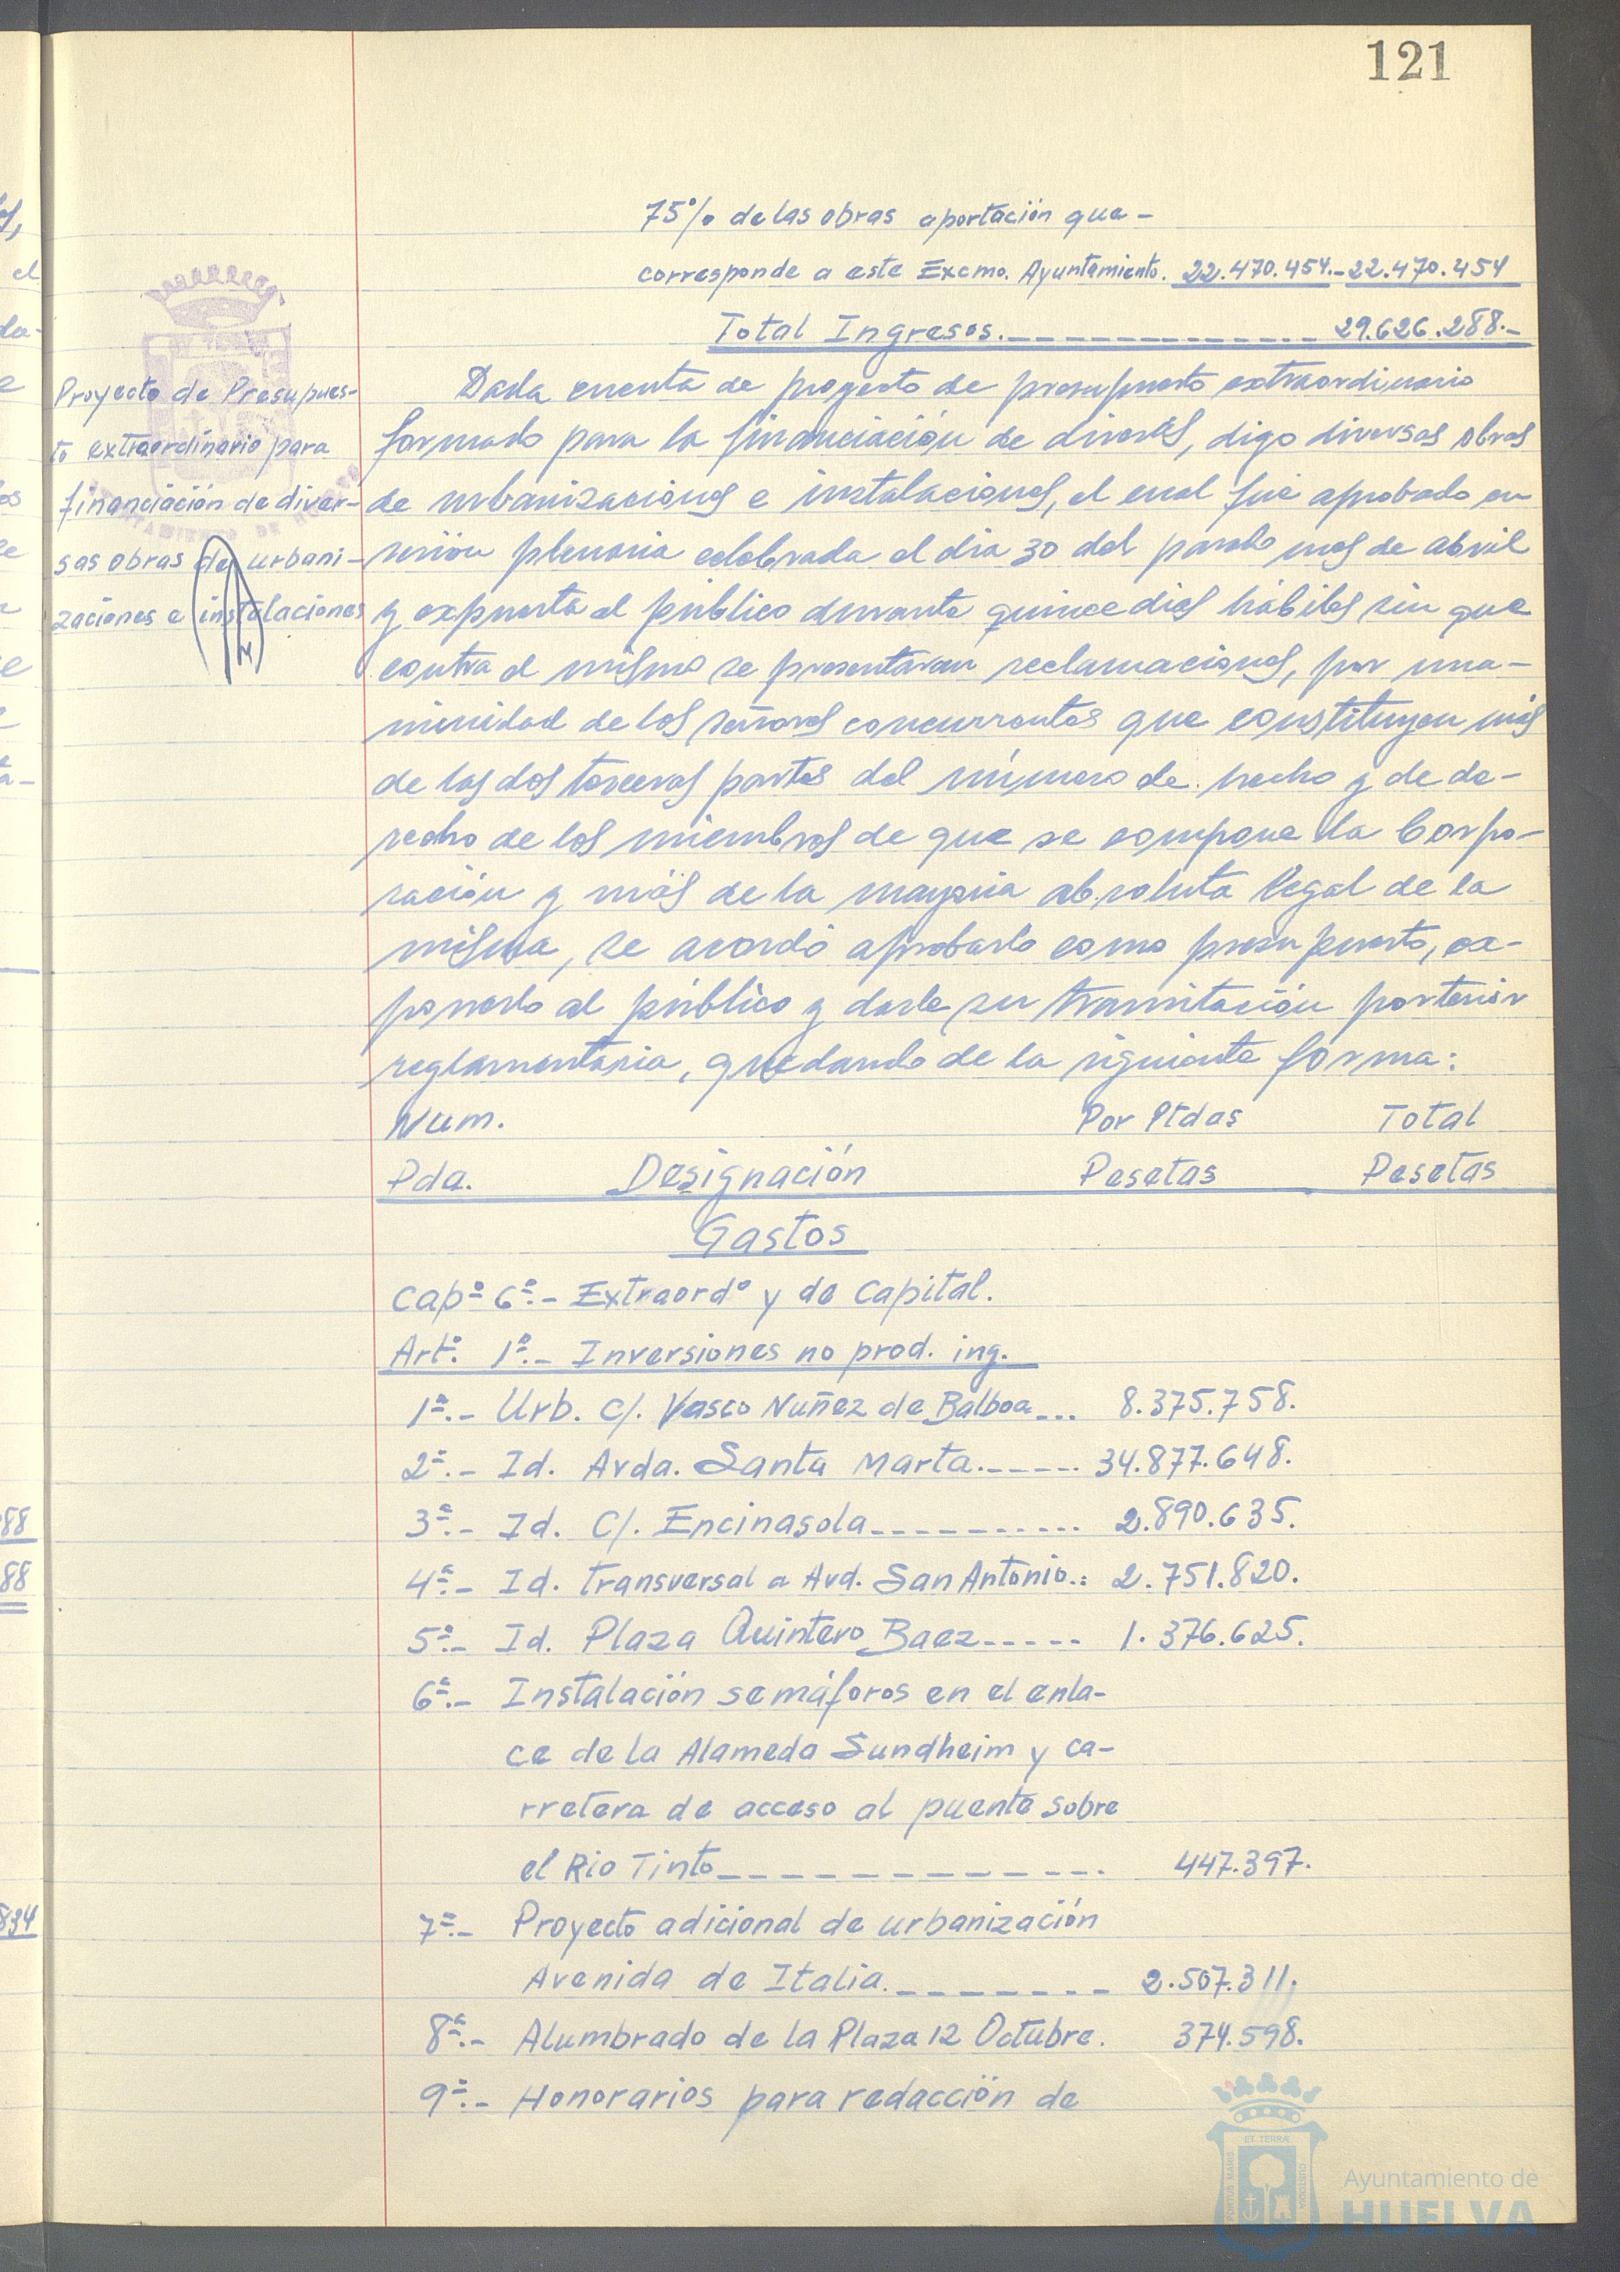 121
75% de las obras aportación que-
corresponde a este Excmo. Ayuntamiento. 22.470.454.-22.470.454
Total Ingresos.____________ 29.626.288.-
Proyecto de Presupues-
to extraordinario para
financiación de diver-
sas obras de urbani-
zaciones e instalaciones
Dada cuenta de proyecto de presupuesto extraordinario
formado para la financiación de diversas, digo diversas obras
de urbanizaciones e instalaciones, el cual fue aprobado en
sesión plenaria celebrada el dia 30 del pasado mes de abril
y expuesta al público durante quince dias hábiles sin que
contra el mismo se presentaran reclamaciones, por una-
nimidad de los señores concurrentes que constituyen más
de las dos terceras partes del número de hecho y de de-
recho de los miembros de que se compone la Corpo-
ración y más de la mayoria absoluta legal de la
misma, se acordó aprobarlo como presupuesto, ex-
ponerlo al público y darle su tramitación posterior
reglamentaria, quedando de la siguiente forma:
Num. Por Ptdas Total
Pda. Designación Pesetas Pesetas
Gastos
Capº 6º.- Extraordº y de Capital.
Artº. 1º.- Inversiones no prod. ing.
1ª.- Urb. c/. Vasco Nuñez de Balboa... 8.375.758.
2ª.- Id. Avda. Santa Marta.------ 34.877.648.
3ª.- Id. C/. Encinasola---------- 2.890.635.
4ª.- Id. transversal a Avd. San Antonio.: 2.751.820.
5ª.- Id. Plaza Quintero Baez----- 1.376.625.
6ª.- Instalación semáforos en el enla-
ce de la Alameda Sundheim y ca-
rretera de acceso al puente sobre
el Rio Tinto____________. 447.397.
7ª.- Proyecto adicional de urbanización
Avenida de Italia.________ 2.507.311.
8ª.- Alumbrado de la Plaza 12 Octubre. 374.598.
9ª.- Honorarios para redacción de
Ayuntamiento de
HUELVA